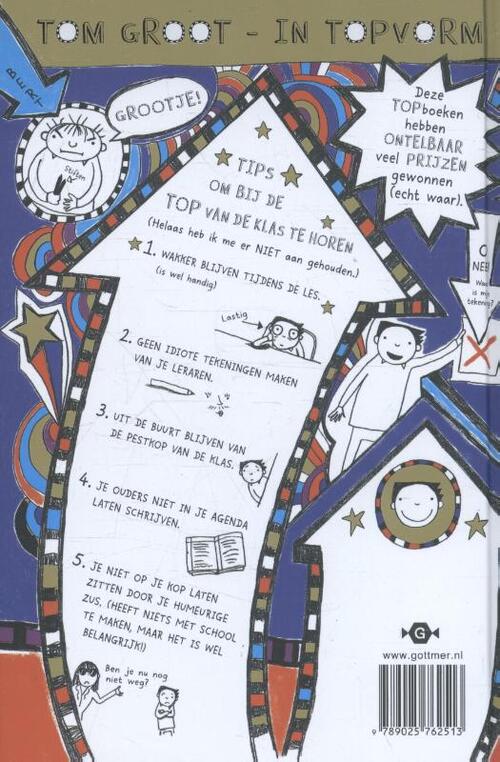 TOM GROOT - IN TOPVORM
BEERT
GROOTJE!
Stilte
Deze
TOPboeken
hebben
ONTELBAAR
veel PRIJZEN
gewonnen
(echt waar).
TIPS
OM BIJ DE
TOP VAN DE KLAS TE HOREN
(Helaas heb ik me er NIET aan gehouden.)
1. WAKKER BLIJVEN TIJDENS DE LES.
(is wel handig)
Lastig
2. GEEN IDIOTE TEKENINGEN MAKEN
VAN JE LERAREN.
3. UIT DE BUURT BLIJVEN VAN
DE PESTKOP VAN DE KLAS.
4. JE OUDERS NIET IN JE AGENDA
LATEN SCHRIJVEN.
5. JE NIET OP JE KOP LATEN
ZITTEN DOOR JE HUMEURIGE
ZUS. (HEEFT NIETS MET SCHOOL
TE MAKEN, MAAR HET IS WEL
BELANGRIJK!)
Ben je nu nog
niet weg?
is mijn
tekening?
G
www.gottmer.nl
9 789025 762513